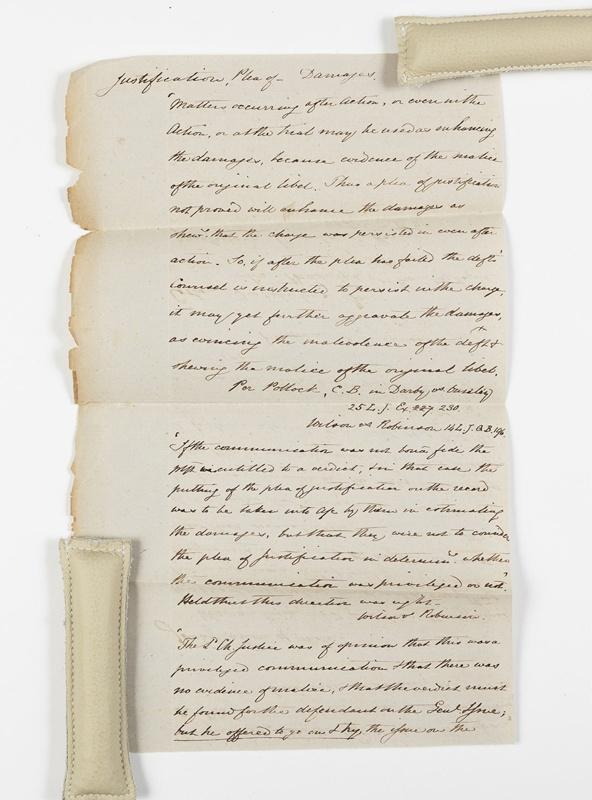 Justification, Plea of – Damages.
"Matters occurring after action, or even in the
Action, or at the trial may be used as enhancing
the damages, because evidence of the malice
of the original libel. Thus a plea of justification
not proved will enhance the damages as
shewg. that the charge was persisted in even after
action. So, if after the plea has failed the defts
Counsel is instructed to persist in the charge,
it may yet further aggravate the damages,
as evincing the malevolence of the deft &
shewing the malice of the original libel.
Per Pollock, C.B. in Darby vs Ouseley
25 L.J. Ex. 227 230.
Wilson vs Robinson 14 L.J. Q.B. 196.
"If the communication was not bonâ fide the
pltff was entitled to a verdict, & in that case the
putting of the plea of justification on the record
was to be taken into a/c by them in estimating
the damages, but that they were not to consider
the plea of Justification in determing. whether
the communication was privileged or not".
Held that this direction was right –
Wilson v Robinson.
"The Ld Ch Justice was of opinion that this was a
privileged communication & that there was
no evidence of malice, & that the verdict must
be found for the defendant on the Genl Issue;
but he offered to go on & try, the issue on the